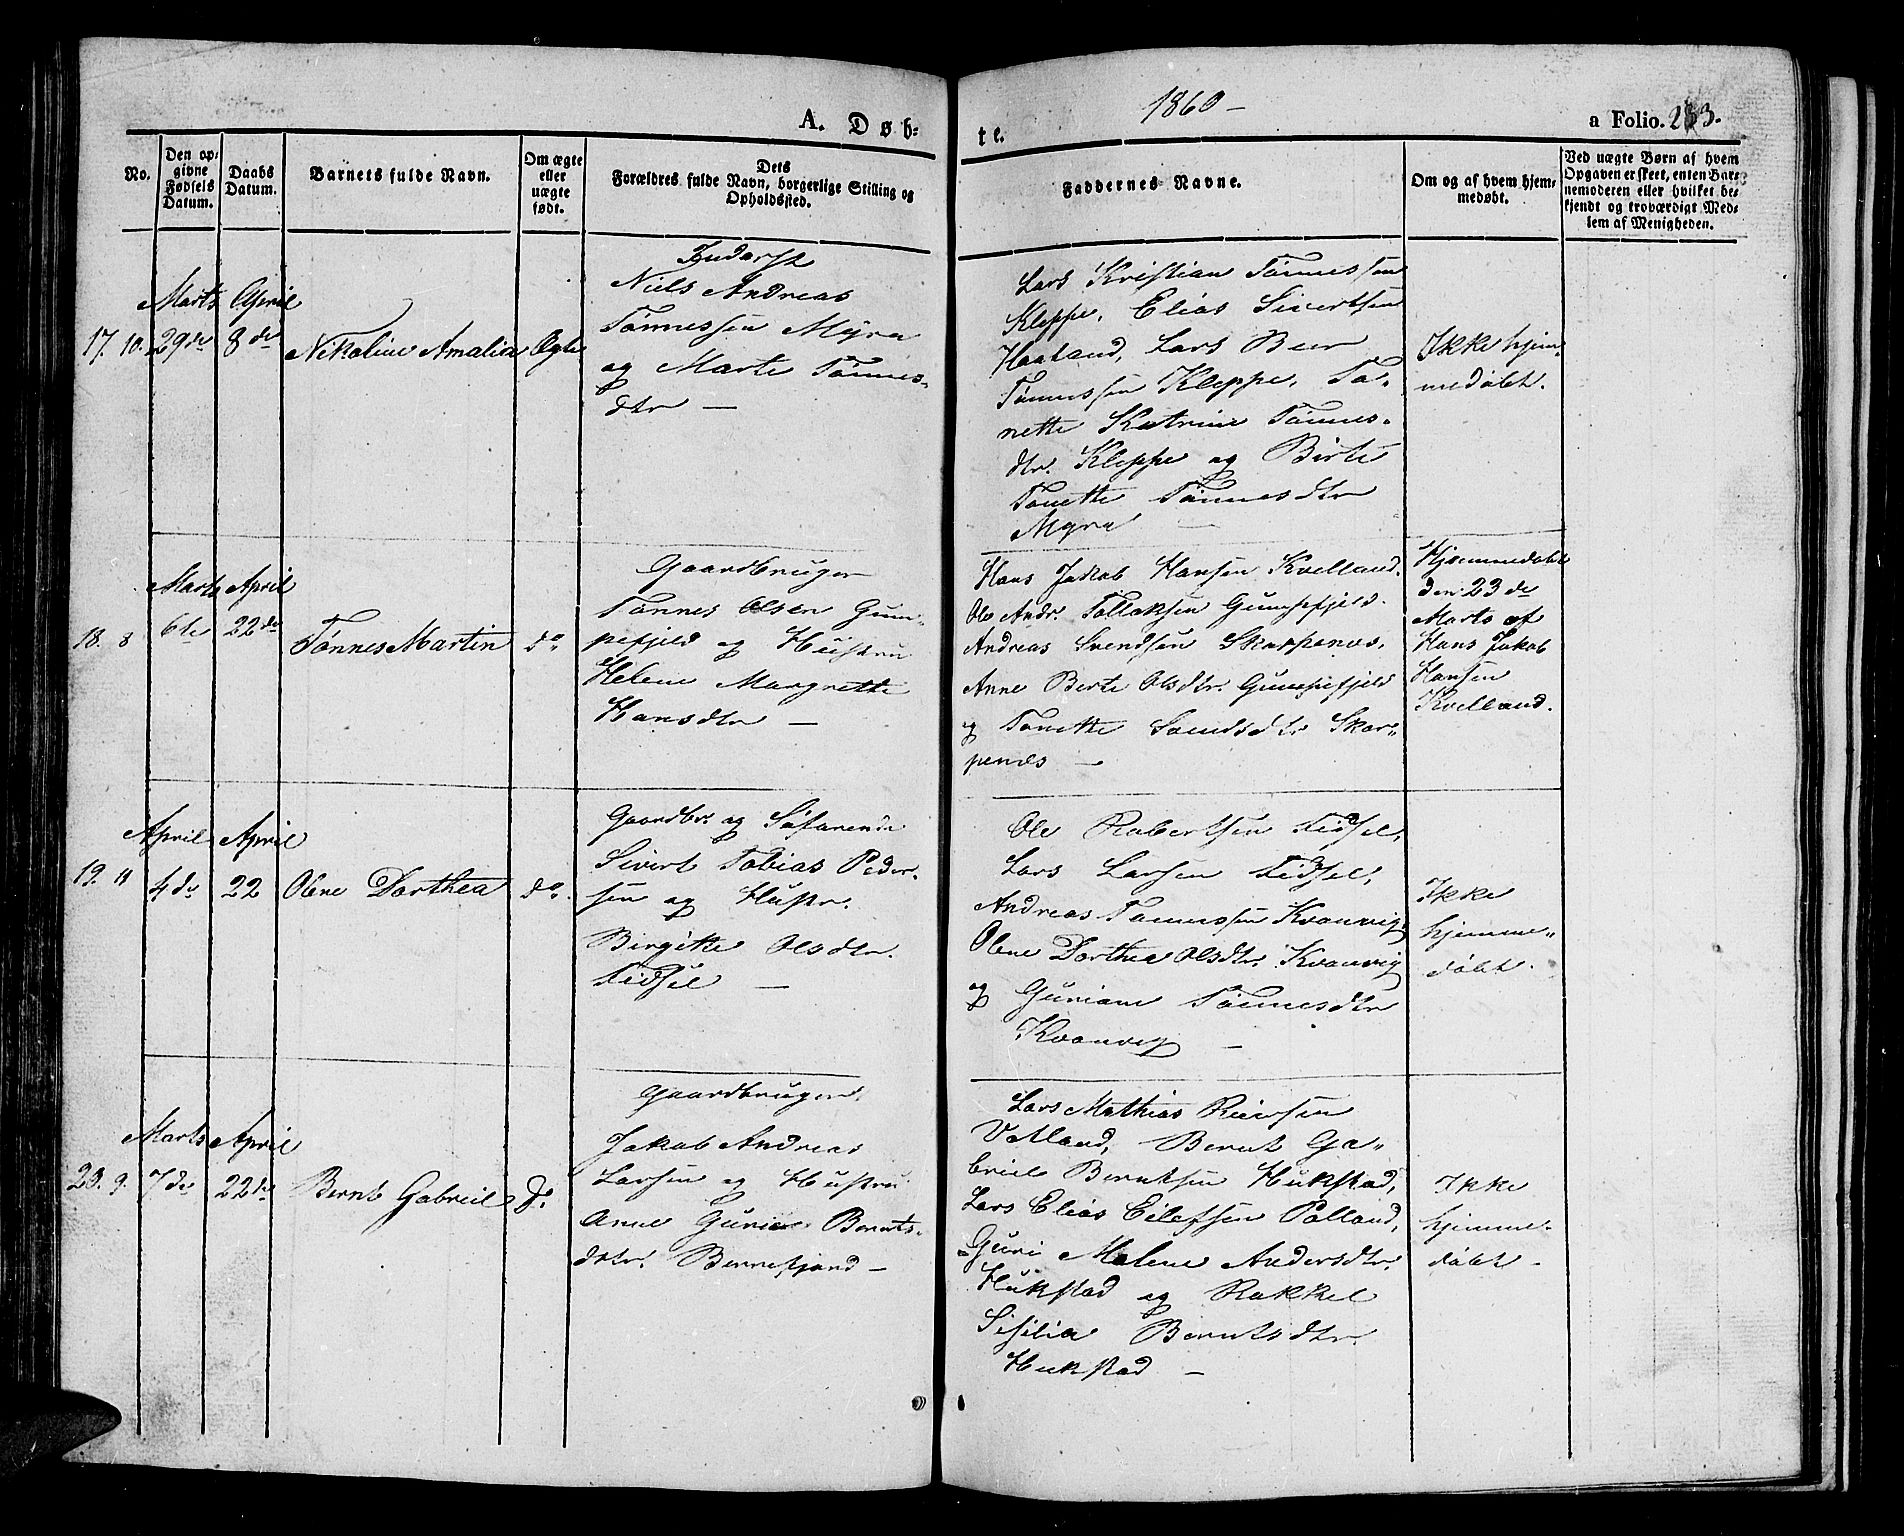 1860-
A. Døb-
te.
a Folio. 233.
No.
Den op-
givne
Fødsels
Datum.
Daabs
Datum.
Barnets fulde Navn.
Om ægte
eller
uægte
født.
Dets
Forældres fulde Navn, borgerlige Stilling og
Opholdssted.
Faddernes Navne.
Om og af hvem hjem-
medøbt.
Ved uægte Børn af hvem
Opgaven er skeet, enten Bar-
nemoderen eller hvilket be-
kjendt og troværdigt Med-
lem af Menigheden.
17. 10.
Marts
29de
April
8de
Nikoline Amalia
Ægte
Inderst
Niels Andreas
Tønnessen Myra
og Marte Tønnes-
dtr —
Lars Kristian Tønnessen
Kleppe, Elias Sivertsen
Haaland, Lars Beer
Tønnessen Kleppe, To-
nette Katrine Tønnes-
dtr. Kleppe og Birte
Tonette Tønnesdtr
Myra —
Ikke hjem-
medøbt.
18. 8
Marts
6te
April
22de
Tønnes Martin
do
Gaardbruger
Tønnes Olsen Gum-
pefjeld og Hustru
Helene Margrette
Hansdtr —
Hans Jakob Hansen Kvelland.
Ole Andr. Tollaksen Gumpefjeld.
Andreas Svendsen Skarpenes,
Anne Berte Olsdtr. Gumpefjeld
og Tonette Svendsdtr Skar-
penes —
Hjemmedøbt
den 23de
Marts af
Hans Jakob
Hansen
Kvelland.
19. 11
April
4de
April
22
Olene Dorthea
do.
Gaardbr. og Søfarende
Sivert Tobias Peder-
sen og Hustr.
Birgitte Olsdtr.
Fidsel —
Ole Robertsen Fidsel,
Lars Larsen Fidsel,
Andreas Tønnessen Kvanvig,
Olene Dorthea Olsdtr. Kvanvig
og Guriane Tønnesdtr
Kvanvig —
Ikke
hjemme-
døbt.
20. 9.
Marts
7de
April
22de
Bernt Gabreil
do
Gaardbruger
Jakob Andreas
Larsen og Hustru
Anne Gurie Bernts-
datr. Bernefjand —
Lars Mathias Reiersen
Vatland, Bernt Ga-
briel Berntsen Hukstad,
Lars Elias Eilefsen Polland,
Guri Malene Andersdtr.
Hukstad og Rakkel
Sisilia Berntsdtr
Hukstad —
Ikke
hjemme-
døbt —